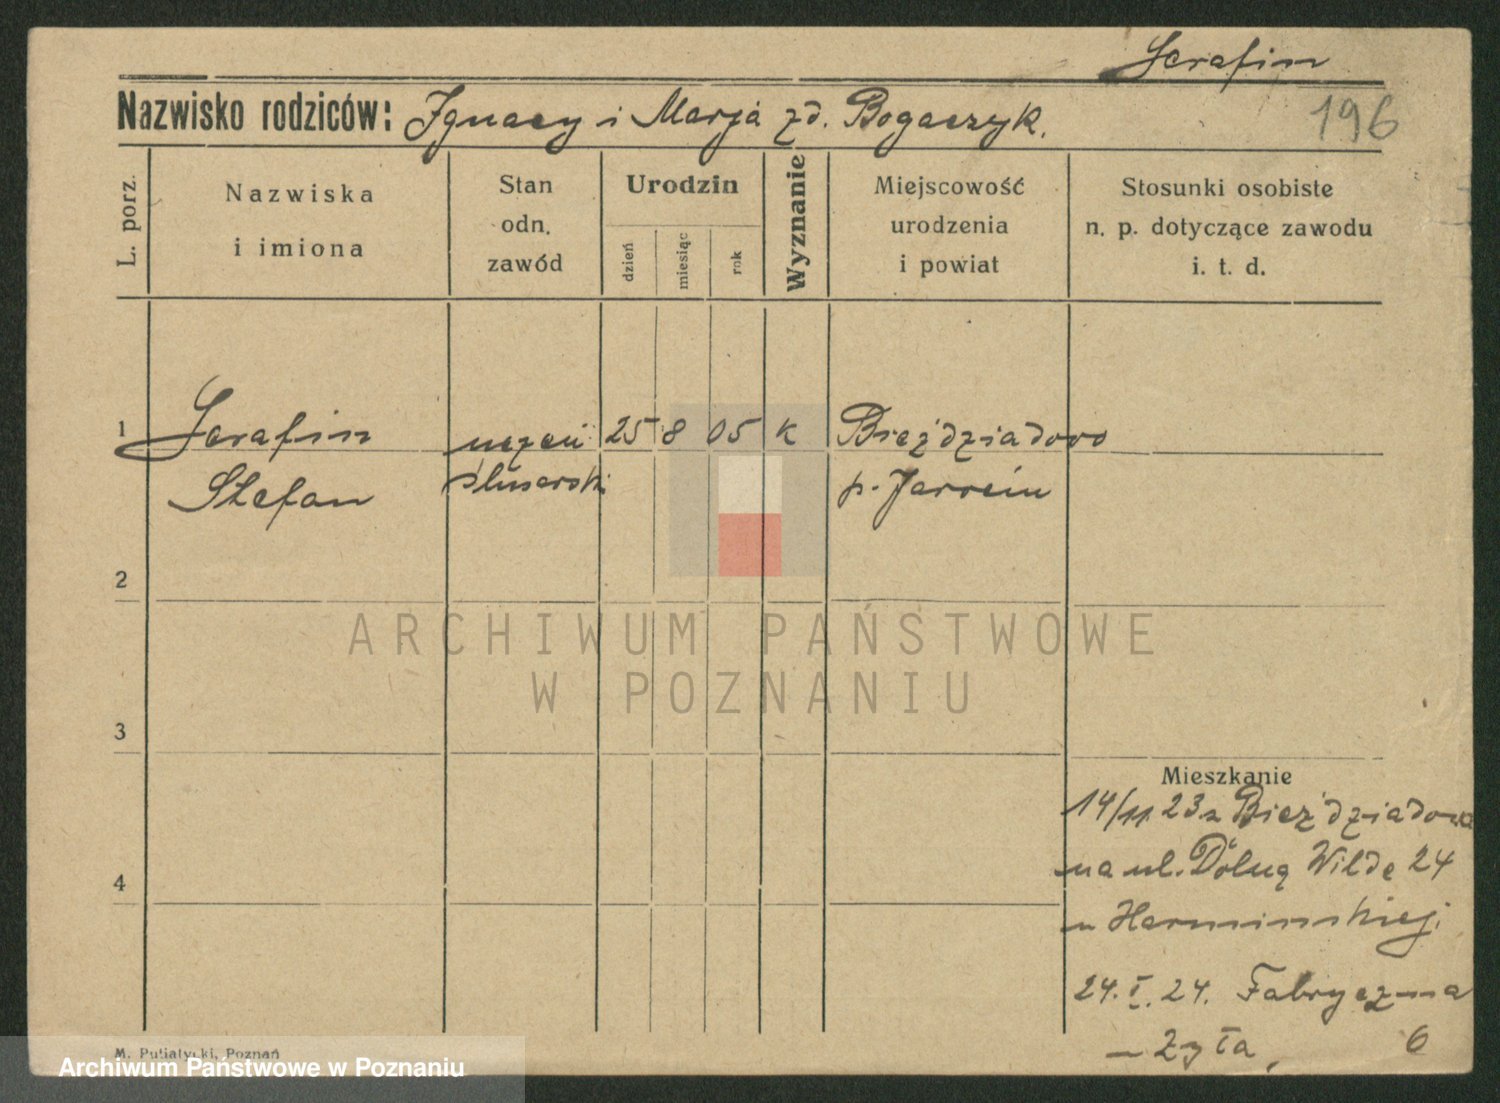 Serafin
Nazwisko rodziców: Ignacy i Marja zd. Bogaczyk.
196
L. porz.
Nazwiska
i imiona
Stan
odn.
zawód
Urodzin
dzień
miesiąc
rok
Wyznanie
Miejscowość
urodzenia
i powiat
Stosunki osobiste
n. p. dotyczące zawodu
i. t. d.
1 Serafin uczeń 25 8 05 k Bieździadowo
Stefan ślusarski p. Jarocin
2
ARCHIWUM PAŃSTWOWE
W POZNANIU
3
Mieszkanie
14/11 23 z Bieździadowa
na ul. Dolną Wildę 24
4
u
24.I.24. Fabryczna
6
M. Putiatycki, Poznań
Archiwum Państwowe w Poznaniu